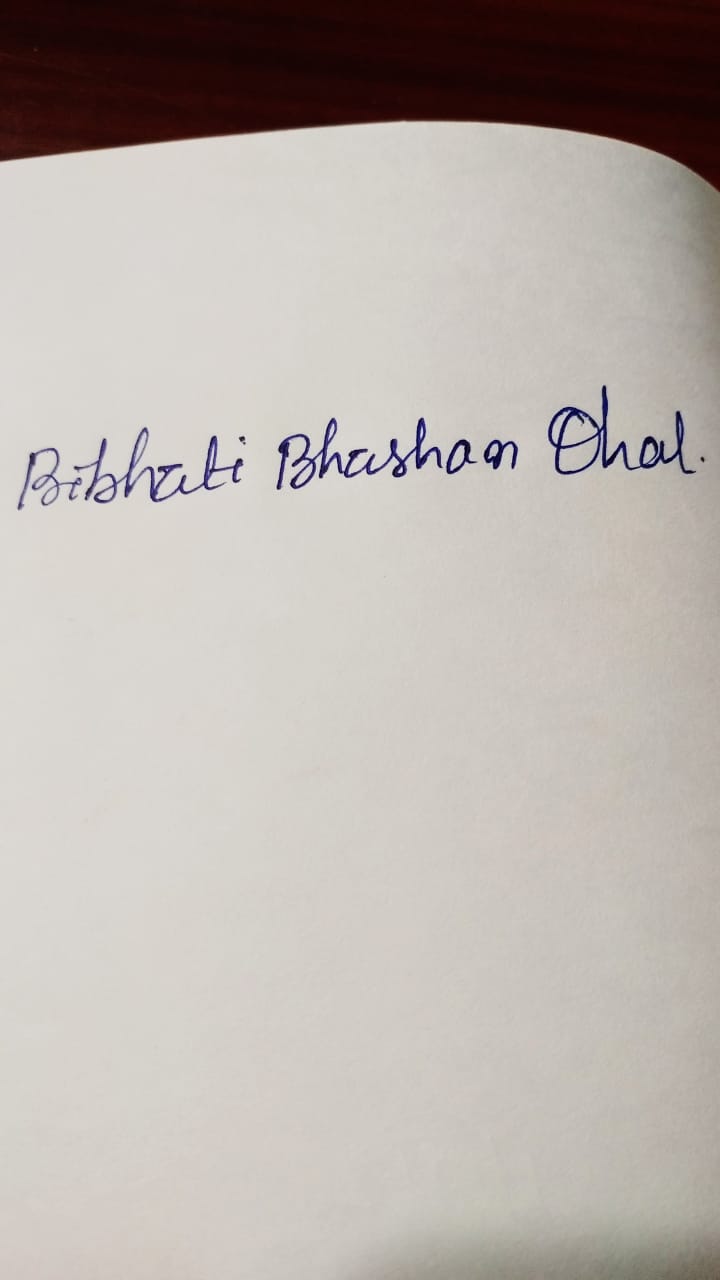 Bibhuti Bhushan Dhal.